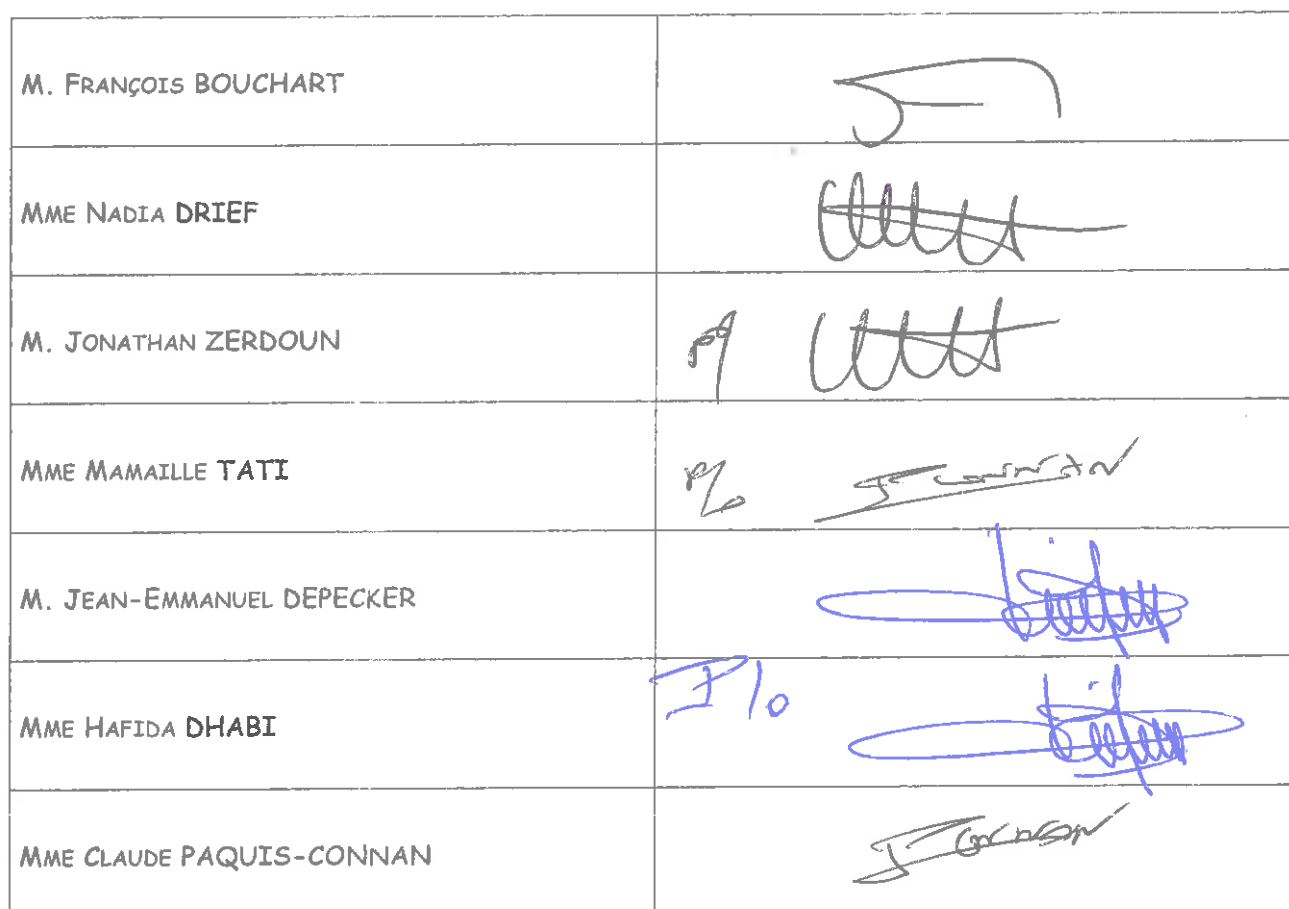 M. FRANÇOIS BOUCHART
MME NADIA DRIEF
M. JONATHAN ZERDOUN
MME MAMAILLE TATI P/o
M. JEAN-EMMANUEL DEPECKER
MME HAFIDA DHABI P/o
MME CLAUDE PAQUIS-CONNAN